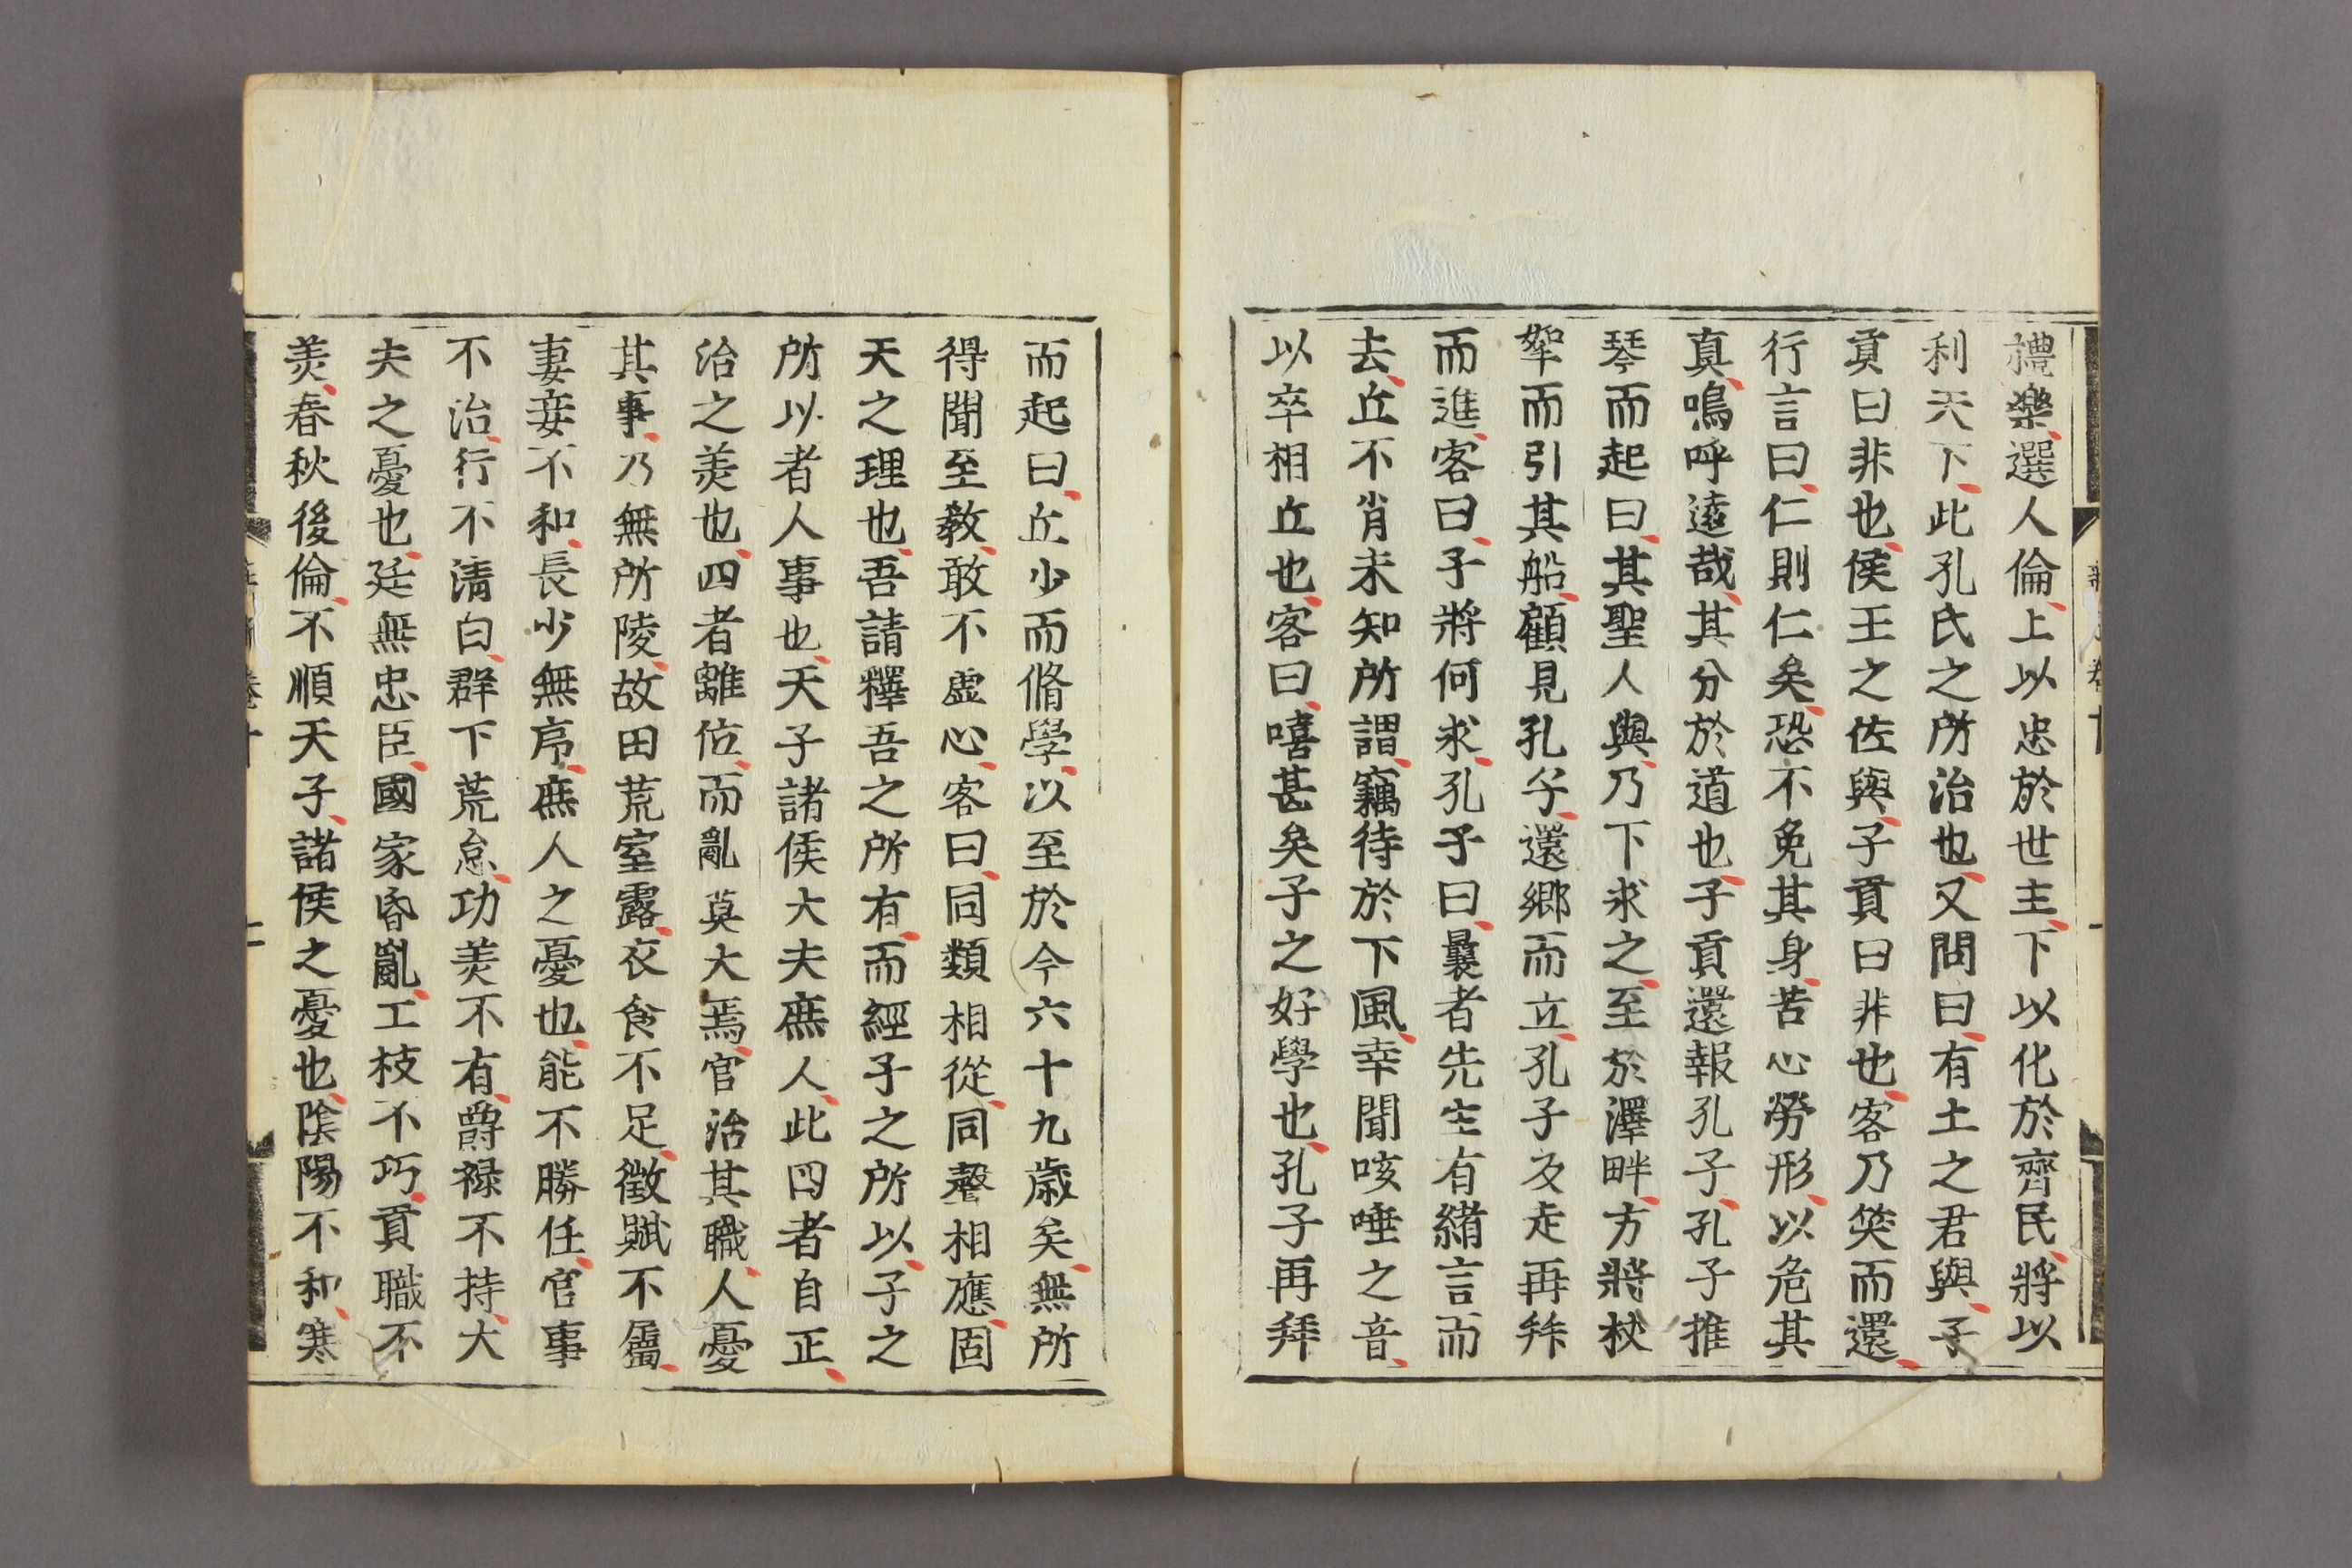 禮樂選人倫上以忠於世主下以化於齊民將以
利天下此孔氏之所治也又問曰有土之君與子
貢曰非也侯王之佐與子貢曰非也客乃笑而還
行言曰仁則仁矣恐不免其身苦心勞形以危其
真鳴呼遠哉其分於道也子貢還報孔子孔子推
琴而起曰其聖人與乃下求之至於澤畔方將杖
挐而引其船顧見孔子還鄉而立孔子反走再拜
而進客曰子將何求孔子曰曩者先生有緒言而
去丘不肖未知所謂竊待於下風幸聞咳唾之音
以卒相丘也客曰嘻甚矣子之好學也孔子再拜
而起曰丘少而脩學以至於今六十九歲矣無所
得聞至教敢不虛心客曰同類相從同聲相應固
天之理也吾請釋吾之所有而經子之所以子之
所以者人事也天子諸侯大夫庶人此四者自正
治之美也四者離位而亂莫大焉官治其職人憂
其事乃無所陵故田荒室露衣食不足徵賦不屬
妻妾不和長少無序庶人之憂也能不勝任官事
不治行不清白群下荒怠功美不有爵祿不持大
夫之憂也廷無忠臣國家昏亂工技不巧貢職不
美春秋後倫不順天子諸侯之憂也陰陽不和寒